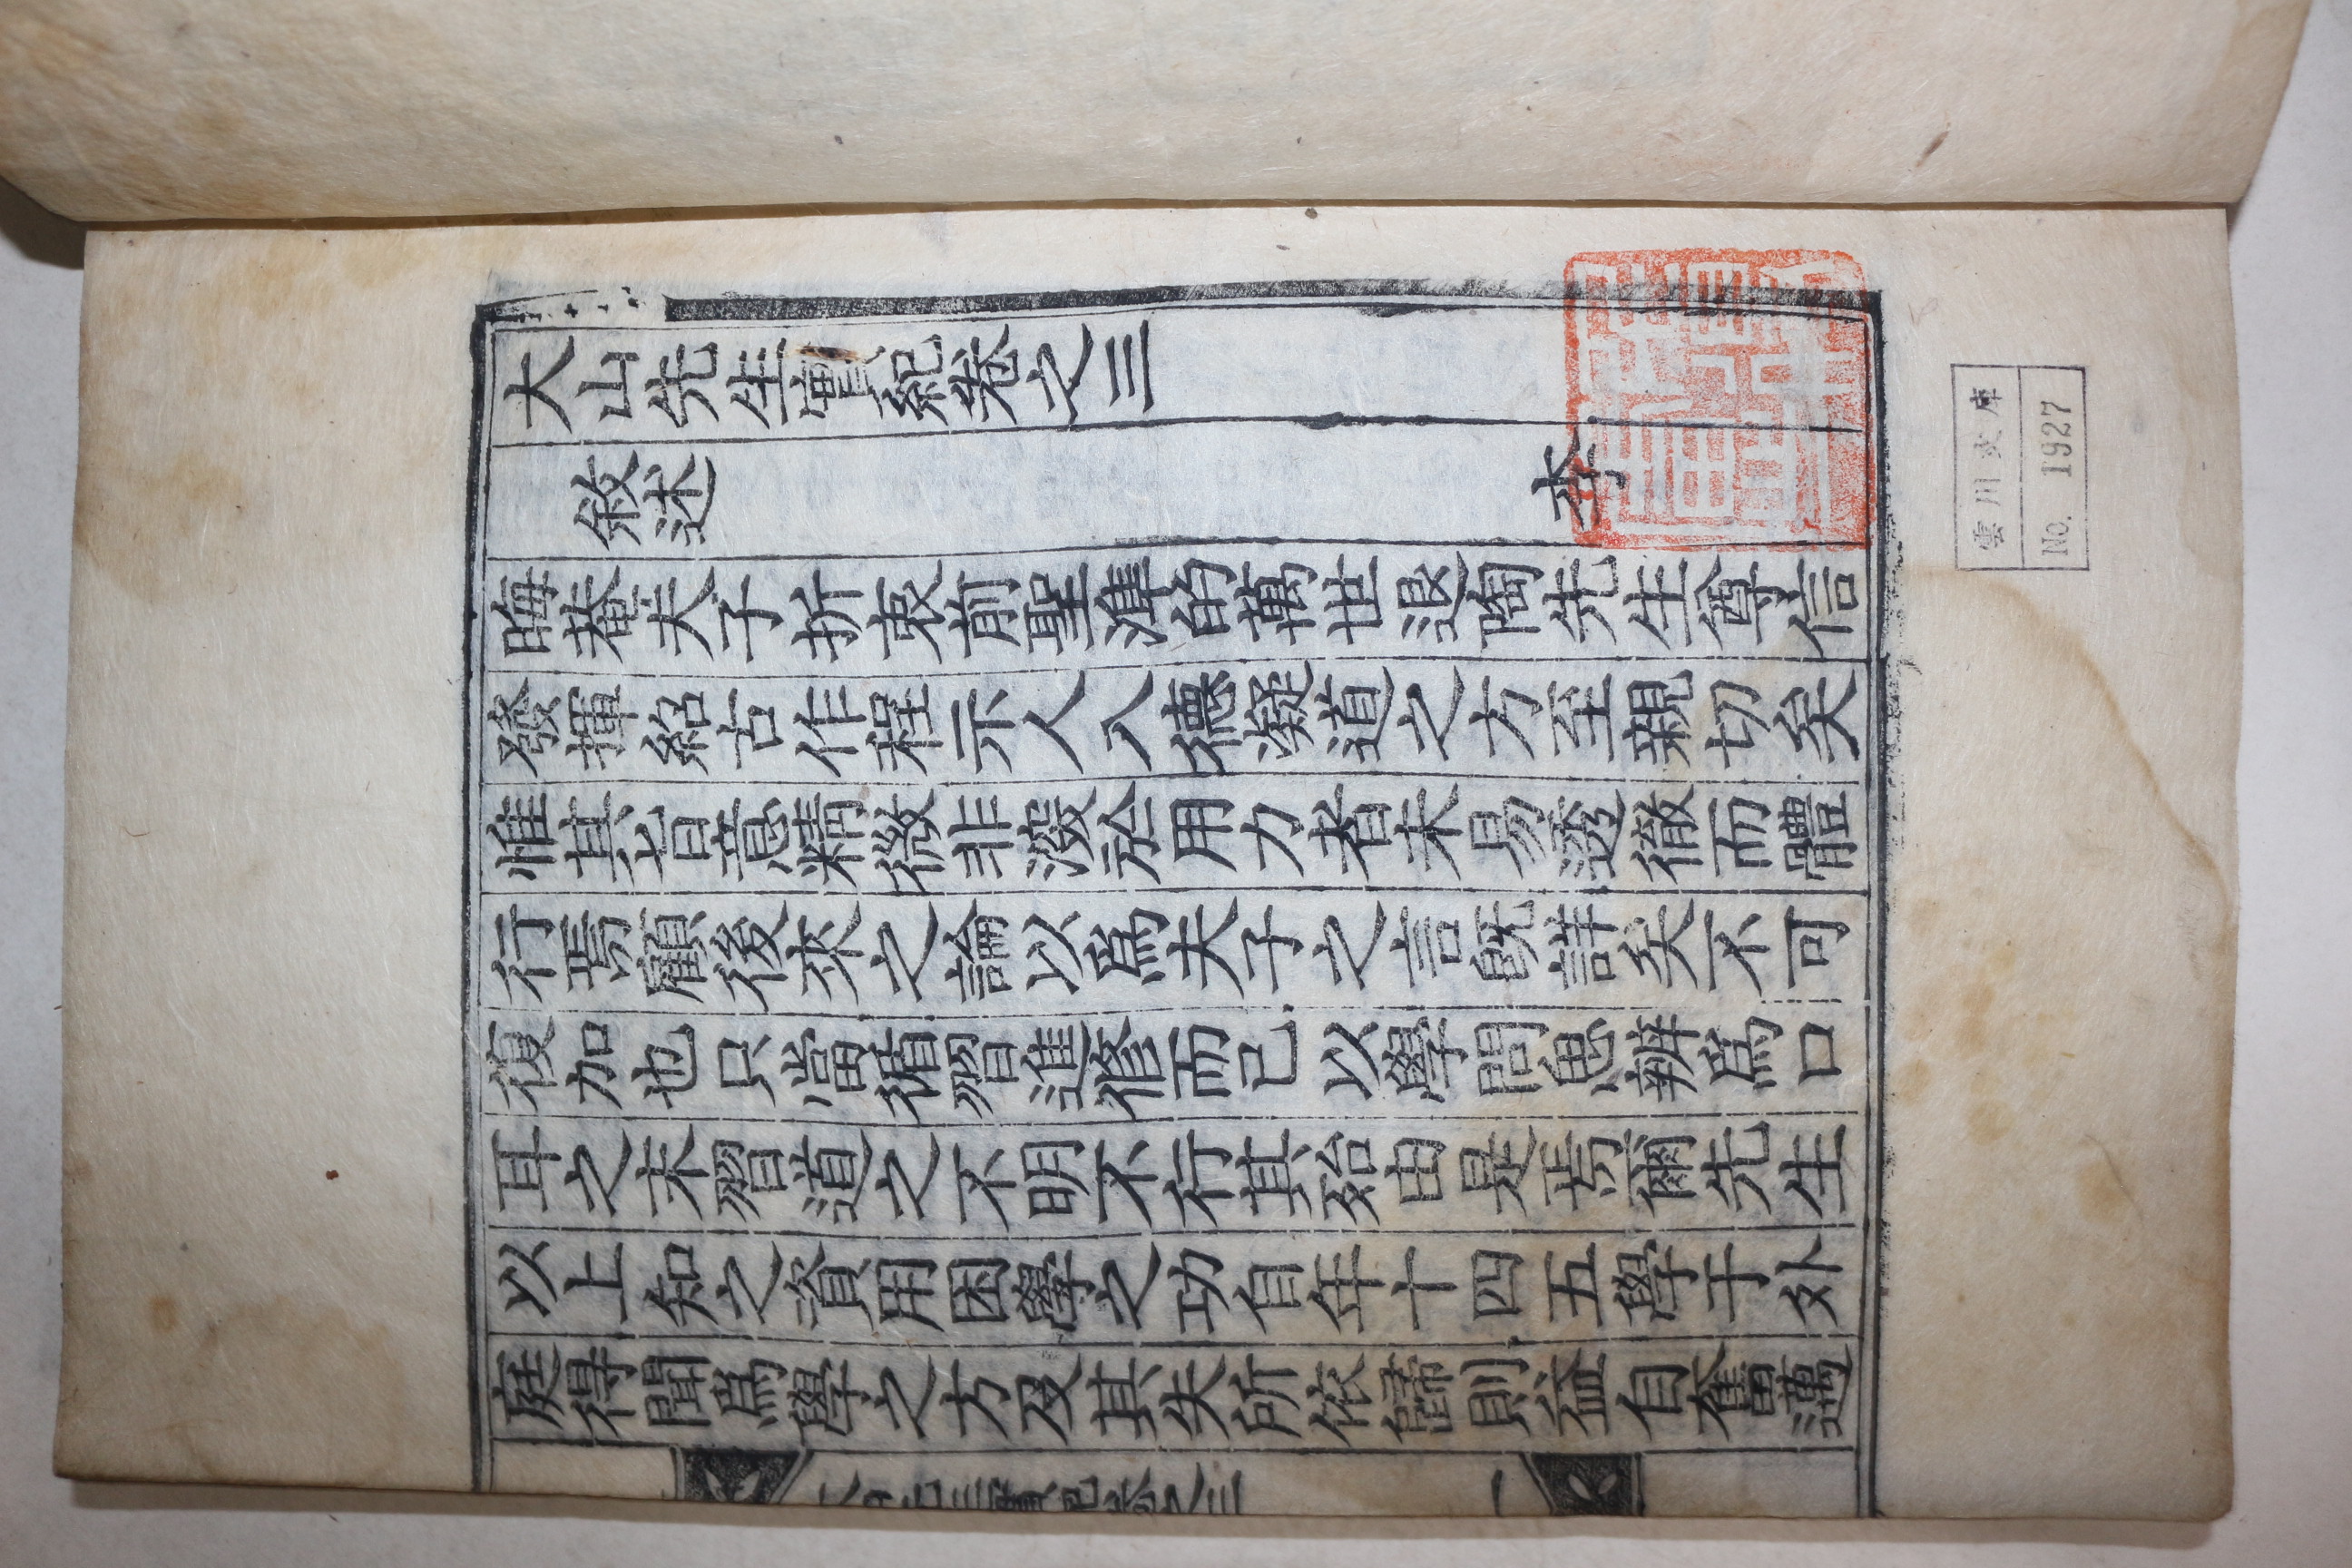 大山先生實紀卷之三
敘述 李
晦菴夫子折衷前聖準的萬世退陶先生尊信
發揮紹古作程示人入德凝道之方至親切矣
惟其旨意精微非潑於用力者未易透徹而體
行焉顧後來之論以爲夫子之言既詳矣不可
復加也只當循習進修而已以學問思辨爲口
耳之末習道之不明不行其殆由是焉爾先生
以上知之資用困學之功自年十四五學于外
庭得聞爲學之方及其失所依歸則益自奮邁
大山先生實紀卷之三 一
雲川文庫
No. 1927